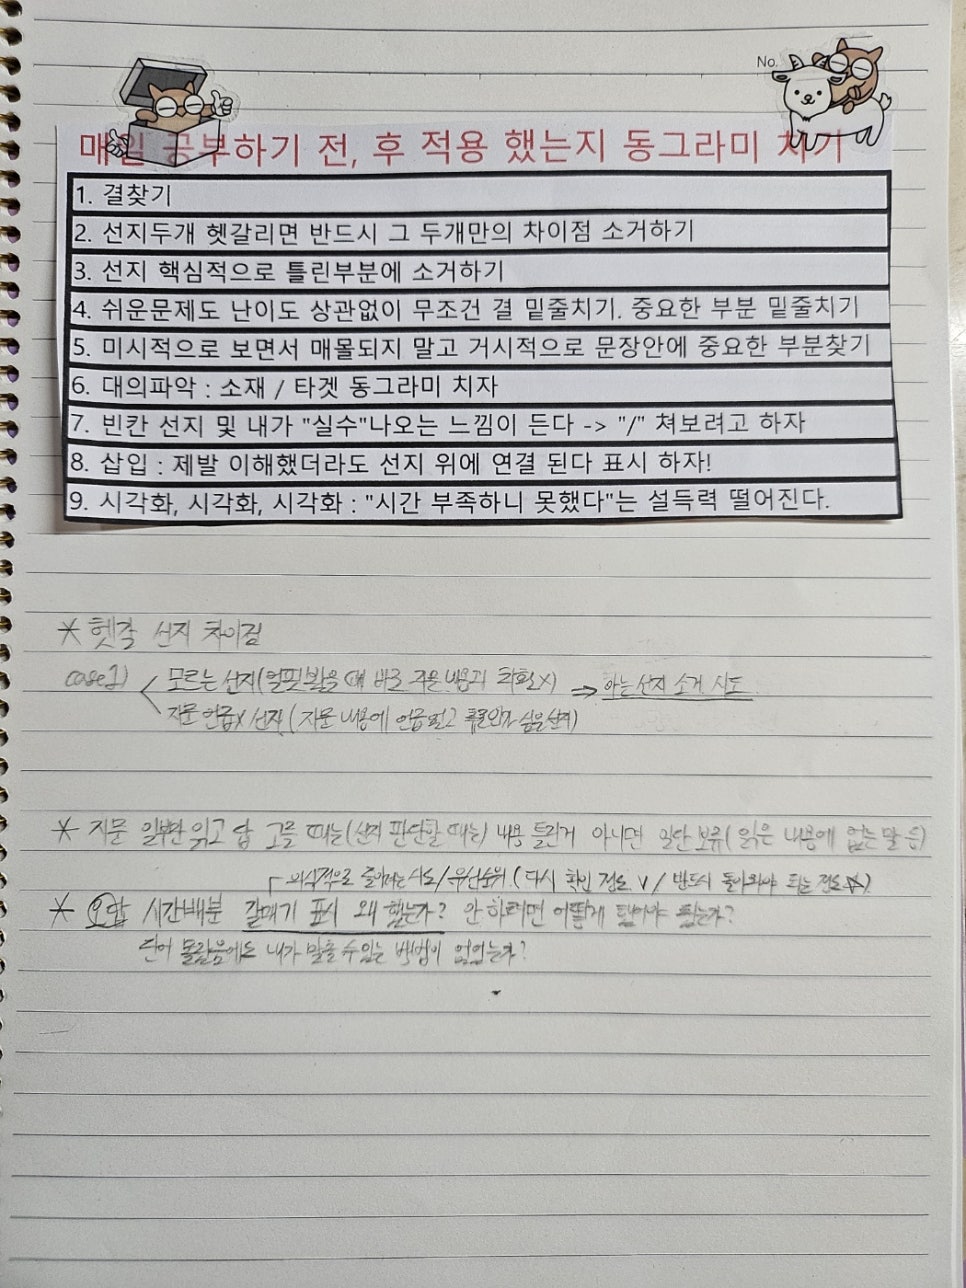 No.
매일 공부하기 전, 후 적용 했는지 동그라미 치기
1. 결찾기
2. 선지두개 헷갈리면 반드시 그 두개만의 차이점 소거하기
3. 선지 핵심적으로 틀린부분에 소거하기
4. 쉬운문제도 난이도 상관없이 무조건 결 밑줄치기. 중요한 부분 밑줄치기
5. 미시적으로 보면서 매몰되지 말고 거시적으로 문장안에 중요한 부분찾기
6. 대의파악 : 소재 / 타겟 동그라미 치자
7. 빈칸 선지 및 내가 "실수"나오는 느낌이 든다 -> "/" 쳐보려고 하자
8. 삽입 : 제발 이해했더라도 선지 위에 연결 된다 표시 하자!
9. 시각화, 시각화, 시각화 : "시간 부족하니 못했다"는 설득력 떨어진다.
* 헷갈 선지 차이점
case1) 모르는 선지(얼핏 봤을 때 바로 지운 내용과 X) ⇒ 아는선지 소거 시도
지문 언급X 선지 (지문 내용에 언급 싶은 선지)
* 지문 일부만 읽고 답 고를 때는(선지 판단할 때는) 내용 틀린게 아니면 일단 보류(읽은 내용에 없는 말 등)
의식적으로 줄이려는 시도/우선순위 (다시 확인 정도 V / 반드시 돌아와야 되는 정도 ☆)
* 오답 시간배분 갈매기 표시 왜 했는가? 안 하려면 어떻게 됐어야 됐는가?
단어 몰랐음에도 내가 맞출 수 있는 방법이 없었는가?